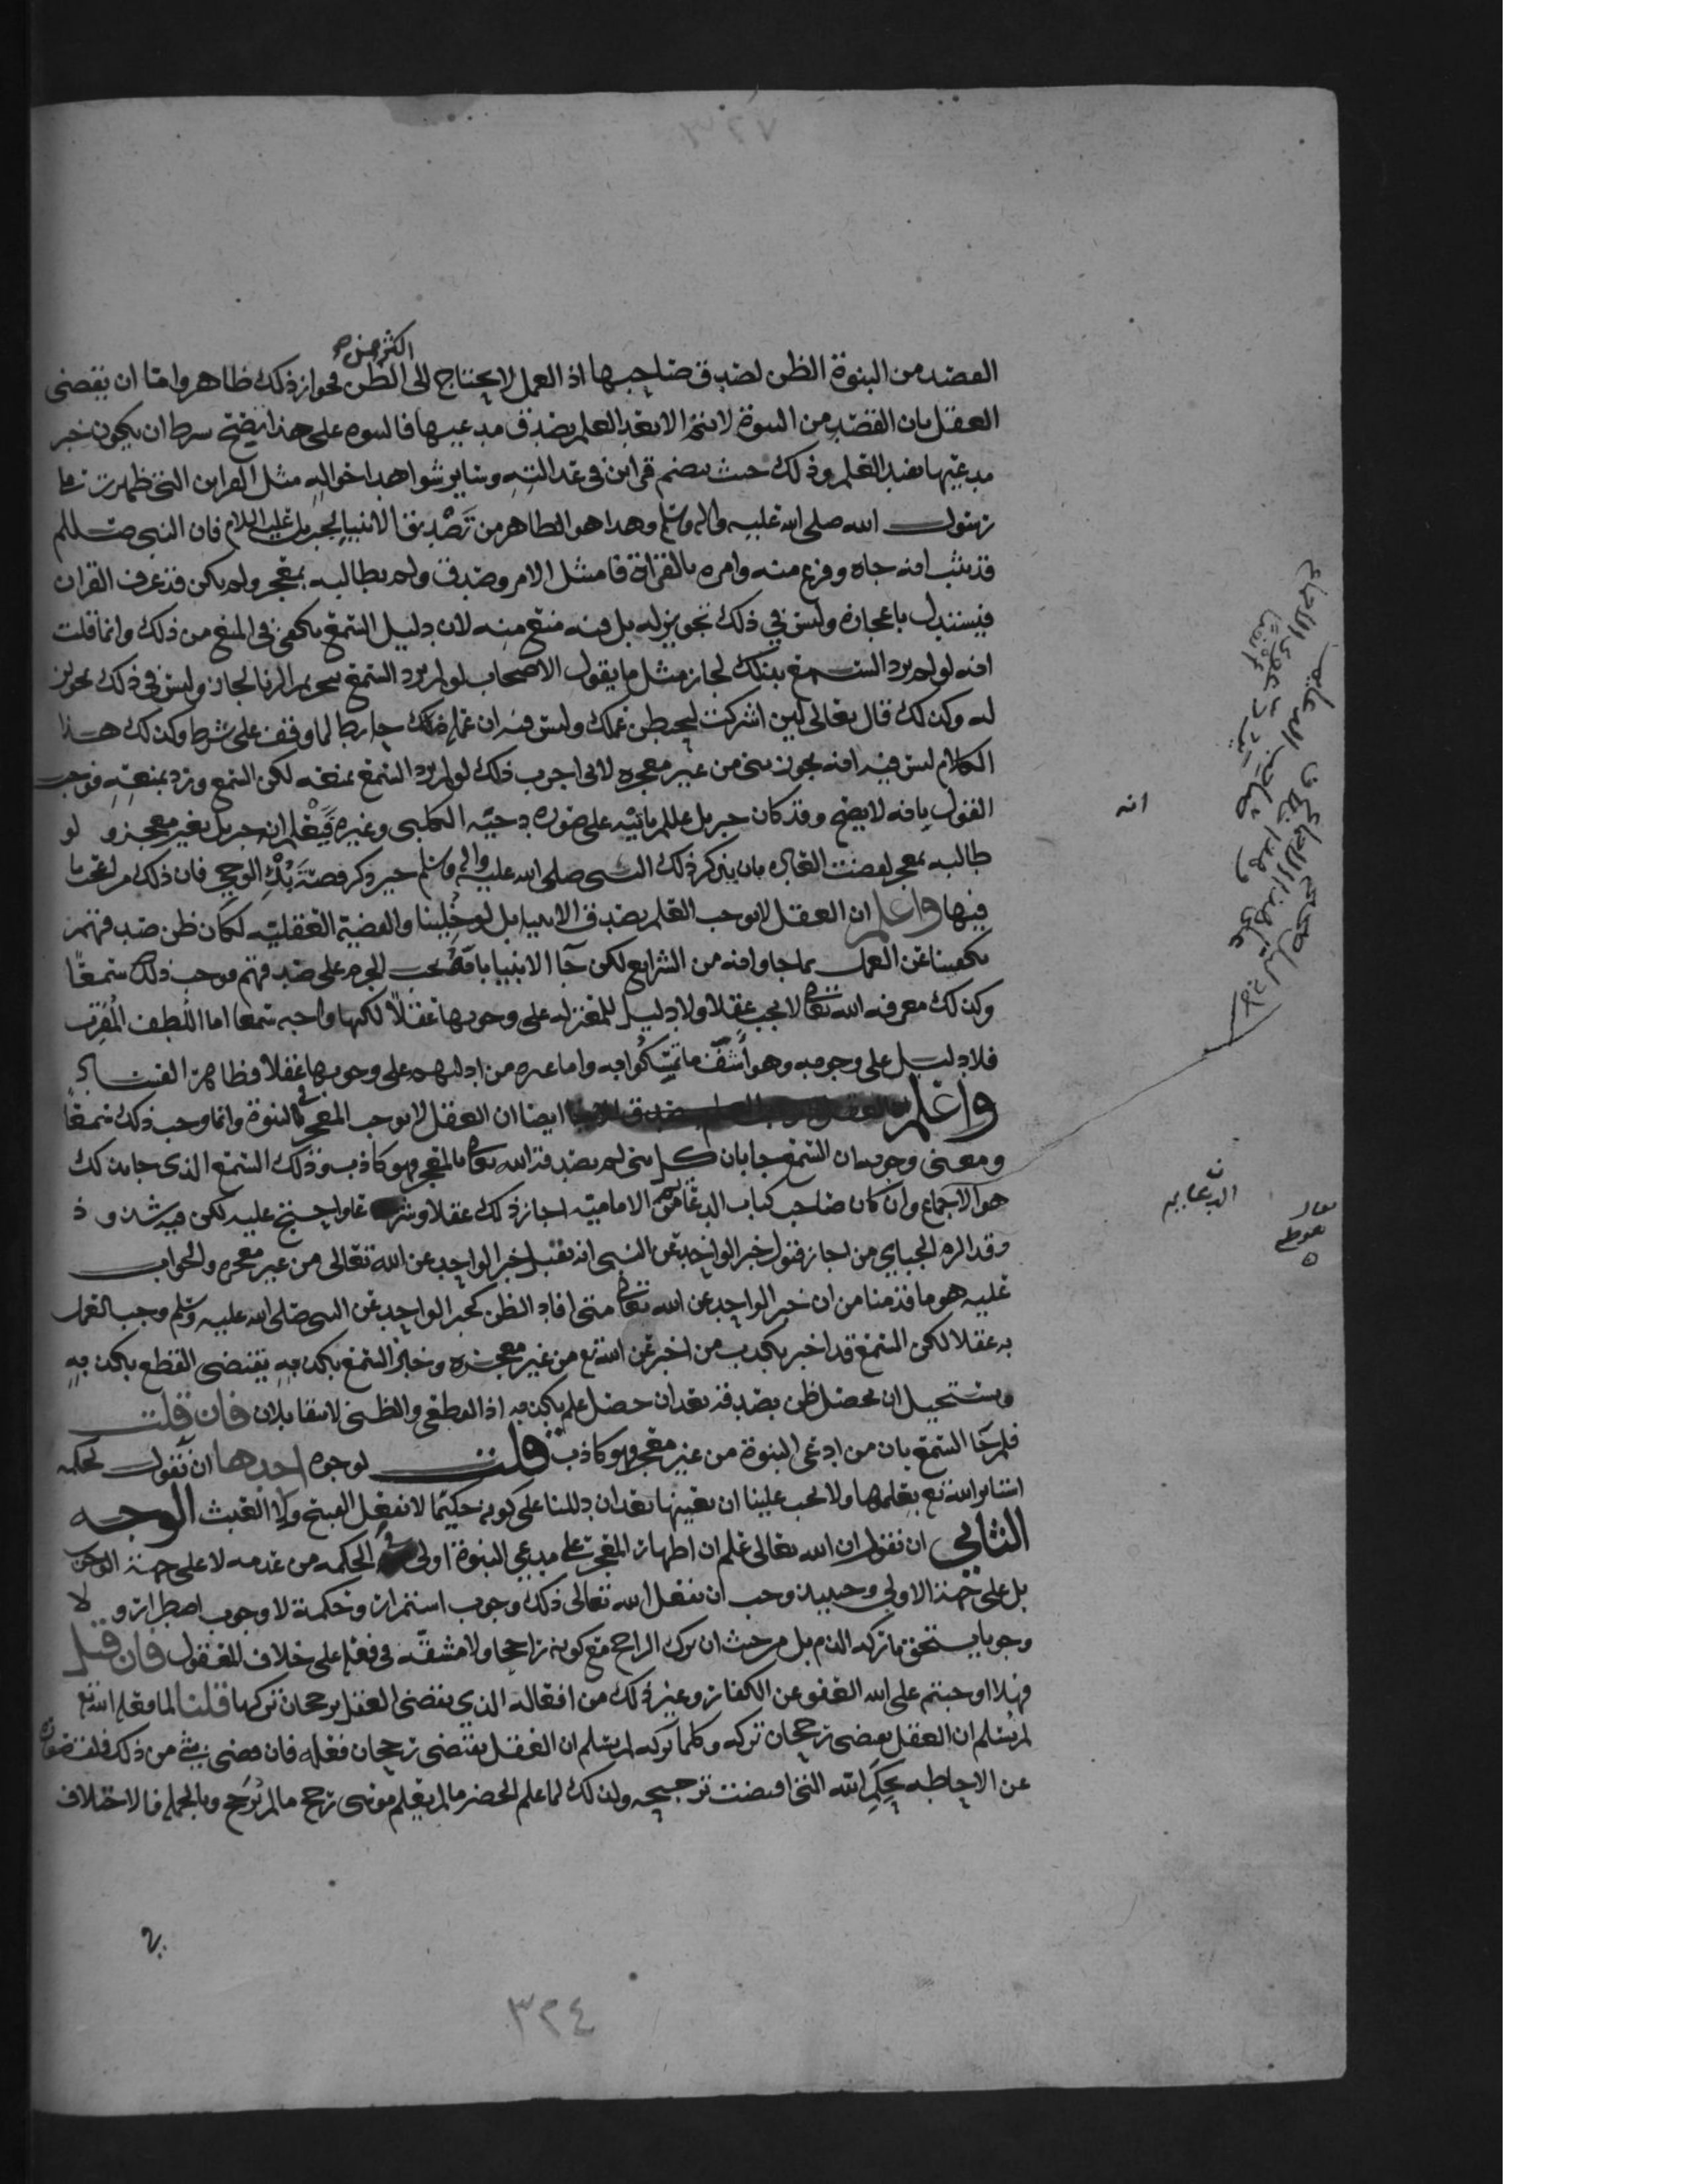 اكثر من
القصد من النبوة الظن لصدق صاحبها اذ العمل لا يحتاج الى الظن فجواز ذلك ظاهر واما ان يقضي
العقل بان القصد من النبوة لا يتم الا بعد العلم بصدق مدعيها فالنبوه على هذا يصح شرط ان يكون خبر
مدعيها يفيد العلم وذلك حيث ينضم قراين في عدالته وساير شواهد احواله مثل القراين التي ظهرت على
رسول الله صلى الله عليه واله وسلم وهذا هو الظاهر من تصديق الانبيا لجبريل عليه السلام فان النبي صللم
قد ثبت انه جاه وفزع منه وامره بالقراة فامتثل الامر وصدق ولم يطالبه بمعجز ولم يكن قد عرف القران
فيستدل باعجازه وليس في ذلك تجويز له بل فيه منع منه لان دليل السمع يكفي في المنع من ذلك وانما قلت
انه لو لم يرد السمع بذلك لجاز مثل ما يقول الاصحاب لو لم يرد السمع بتحريم الزنا لجاز وليس في ذلك تجويز
له وكذلك قال تعالى لين اشركت ليحبطن عملك وليس فيه ان عمله حابط لما وقف على شرط وكذلك هذا
الكلام ليس فيه انه يجوز شي من غير معجزه لاني اجوب ذلك لو لم يرد السمع بمنعه لكن السمع ورد بمنعه فوجب
القول بانه لا يصح وقد كان جبريل عللم ياتيه على صوره دحيه الكلبي وغيره فيعلم انه جبريل بغير معجز و لو
طالبه بمعجز لقضت العادة بان يذكر ذلك النبي صلى الله عليه واله وسلم حين ذكر قصة بدء الوحي فان ذلك من اعجب ما
فيها واعلم ان العقل لا يوجب العلم بصدق الانبيا بل لو خلينا والقضية العقليه لكان ظن صدقهم
يكفينا عن العمل بما جاوا به من الشرايع لكن جا الانبيا بانه يجب الجزم على صدقهم فوجب ذلك سمعا
وكذلك معرفه الله تعالى لا يجب عقلا ولا دليل للمعتزله على وجوبها عقلا لكنها واجبه سمعا اما اللطف المقرب
فلا دليل على وجوبه وهو اشف ما تمسكوا به واما غيره من ادلتهم على وجوبها عقلا فظاهرة الفساد
واعلم ايضا ان العقل لا يوجب المعجز في النبوة وانما وجب ذلك سمعا
ومعنى وجوبه ان السمع جا بان كل نبي لم يصدقه الله تعالى بالمعجز فهو كاذب وذلك السمع الذي جا بذلك
هو الاجماع وان كان صاحب كتاب الدعامه من الاماميه اجاز ذلك عقلا وشرعا واحتج عليه لكن فيه شذوذ
وقد الزم الجباي من اجاز قبول خبر الواحد عن النبي انه يقبل خبر الواحد عن الله تعالى من غير معجزه والجواب
عليه هو ما قدمنا من ان خبر الواحد عن الله تعالى متى افاد الظن كخبر الواحد عن النبي صلى الله عليه وسلم وجب العمل
به عقلا لكن السمع قد اخبر بكذب من اخبر عن الله تع من غير معجزه وخبر السمع بكذبه يقتضي القطع بكذبه
ويستحيل ان يحصل ظن بصدقه بعد ان حصل علم بكذبه اذ القطعي والظني لا يتقابلان فان قلت
فلم جا السمع بان من ادعى النبوة من غير معجز فهو كاذب قلت لوجوه احدها ان نقول لحكمه
استاثر الله تع بعلمها ولا يجب علينا ان نعينها بعد ان دللنا على كونه حكيما لا يفعل القبيح ولا العبث الوجه
الثاني ان نقول ان الله تعالى علم ان اظهار المعجز على مدعي النبوة اولى في الحكمه من عدمه لا على جهة الوجوب
بل على جهة الاولى وحينيذ وجب ان يفعل الله تعالى ذلك وجوب استمرار وحكمة لا وجوب اضطرار و لا
وجوبا يستحق تاركه الذم بل من حيث ان ترك الراجح مع كونه راجحا ولا مشقه في فعله على خلاف المعقول فان قيل
فهلا اوجبتم على الله العفو عن الكفار وغير ذلك من افعاله الذي يقضي العقل برجحان تركها قلنا لما فعله الله تع
لم نسلم ان العقل يقضي رجحان تركه وكلما تركه لم نسلم ان العقل يقتضي رجحان فعله فان قضى بشي من ذلك فلقصوره
عن الاحاطه بحكم الله التي اقتضت ترجيحه ولذلك لما علم الخضر ما لم يعلم موسى رجح ما لم يرجح وبالجمله فالاختلاف
انه
٣٢٤